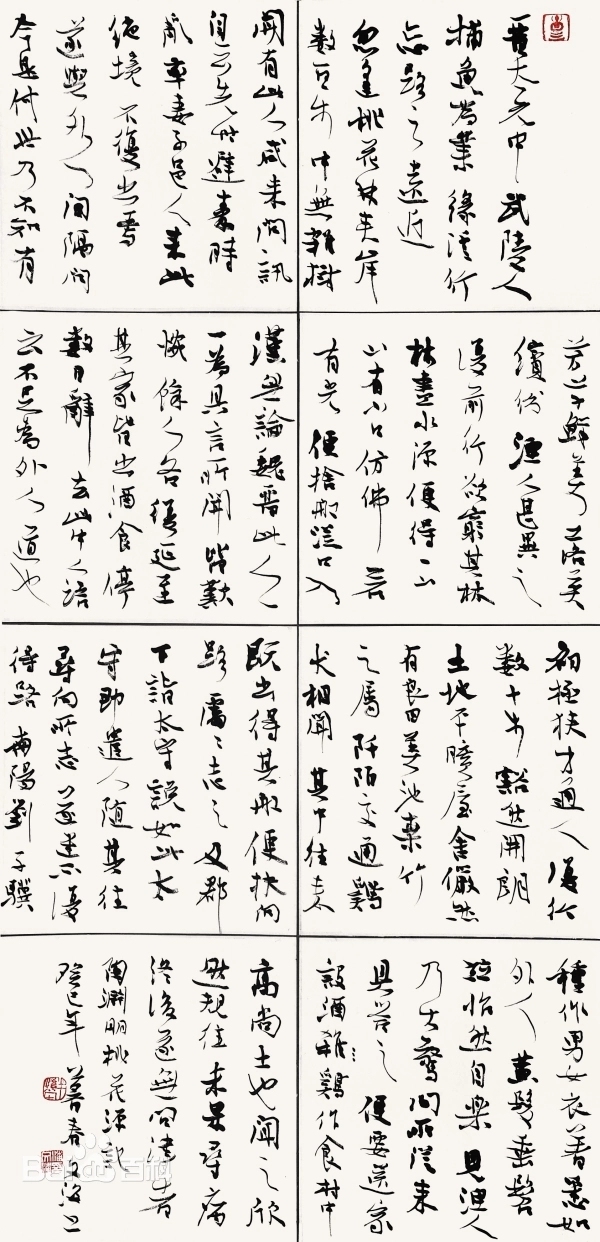 晉太元中武陵人
捕魚為業緣溪行
忘路之遠近
忽逢桃花林夾岸
數百步中無雜樹
芳草鮮美落英
繽紛漁人甚異之
復前行欲窮其林
林盡水源便得一山
山有小口仿佛若
有光便捨船從口入
初極狹才通人復行
數十步豁然開朗
土地平曠屋舍儼然
有良田美池桑竹
之屬阡陌交通鷄
犬相聞其中往來
種作男女衣著悉如
外人黃髮垂髫
並怡然自樂見漁人
乃大驚問所從來
具答之便要還家
設酒殺鷄作食村中
聞有此人咸來問訊
自云先世避秦時
亂率妻子邑人來此
絕境不復出焉
遂與外人間隔問
今是何世乃不知有
漢無論魏晉此人一
一為具言所聞皆歎
惋餘人各復延至
其家皆出酒食停
數日辭去此中人語
云不足為外人道也
既出得其船便扶向
路處處志之及郡
下詣太守說如此太
守即遣人隨其往
尋向所志遂迷不復
得路南陽劉子驥
高尚士也聞之欣
然規往未果尋病
終後遂無問津者
陶淵明桃花源記
癸巳年 春
Baidu百科